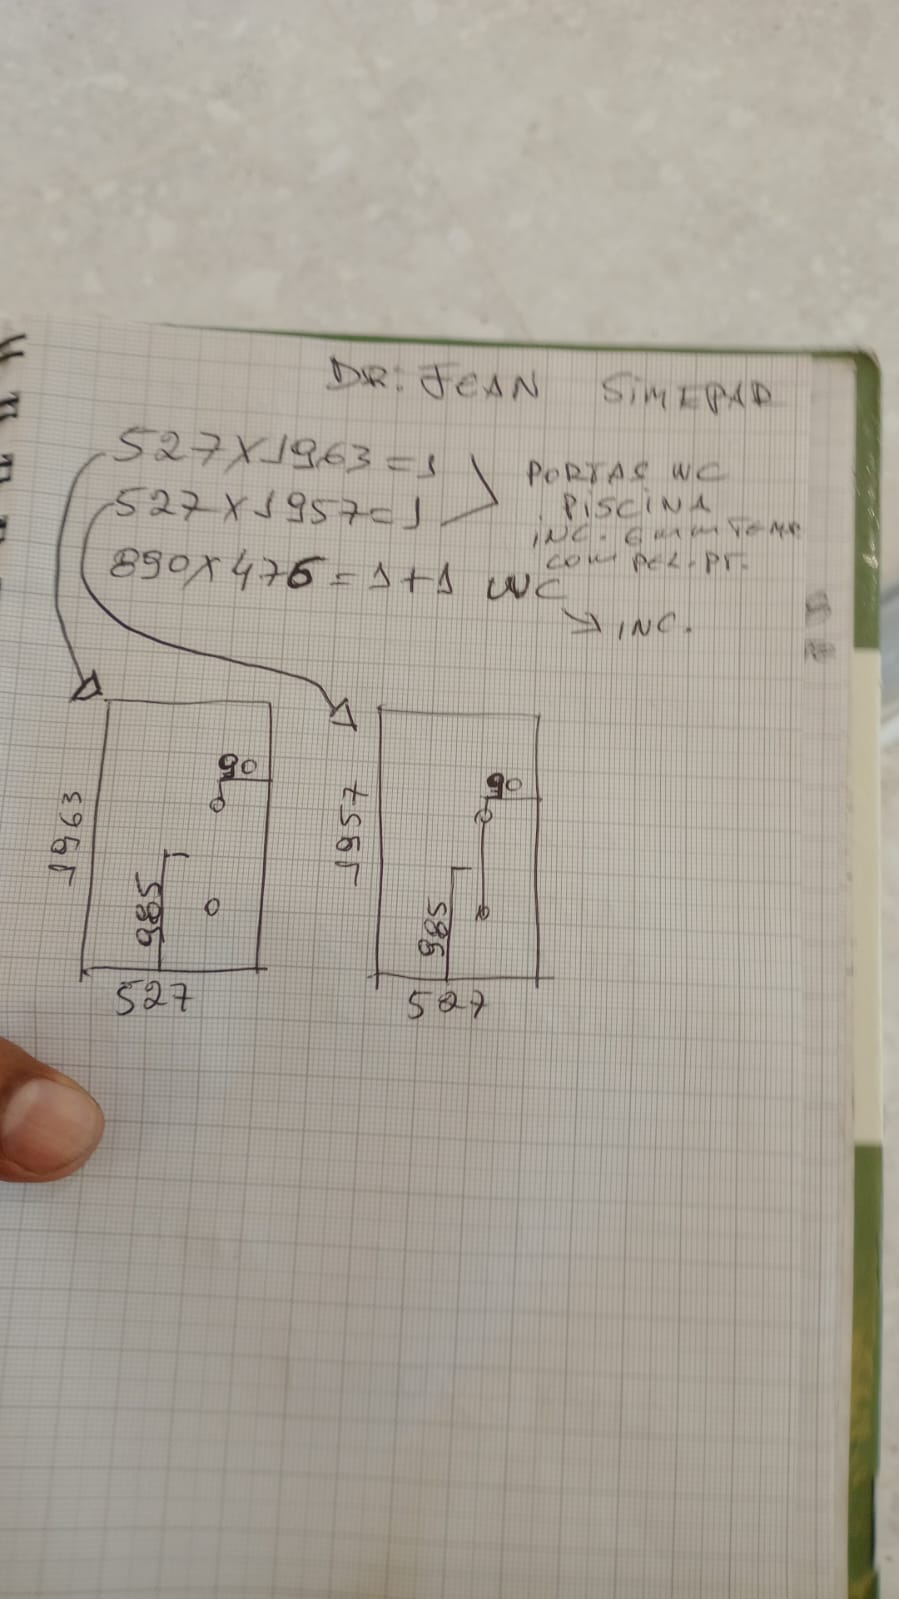 DR: JEAN SIMEPAR
527X1963=1
527X1957=1
PORTAS WC
PISCINA
INC. 6mm TEMP
COM PEL. PT.
890X476=1+1 WC
INC.
90
1963
985
527
90
1957
985
527